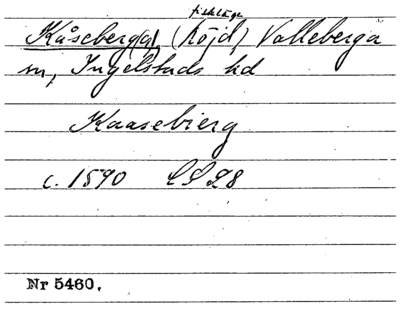 fiskläge
Kåseberg(a), (höjd) Valleberga
sn, Ingelstads hd
Kaasebierg
c. 1590 LS 28
Nr 5460.